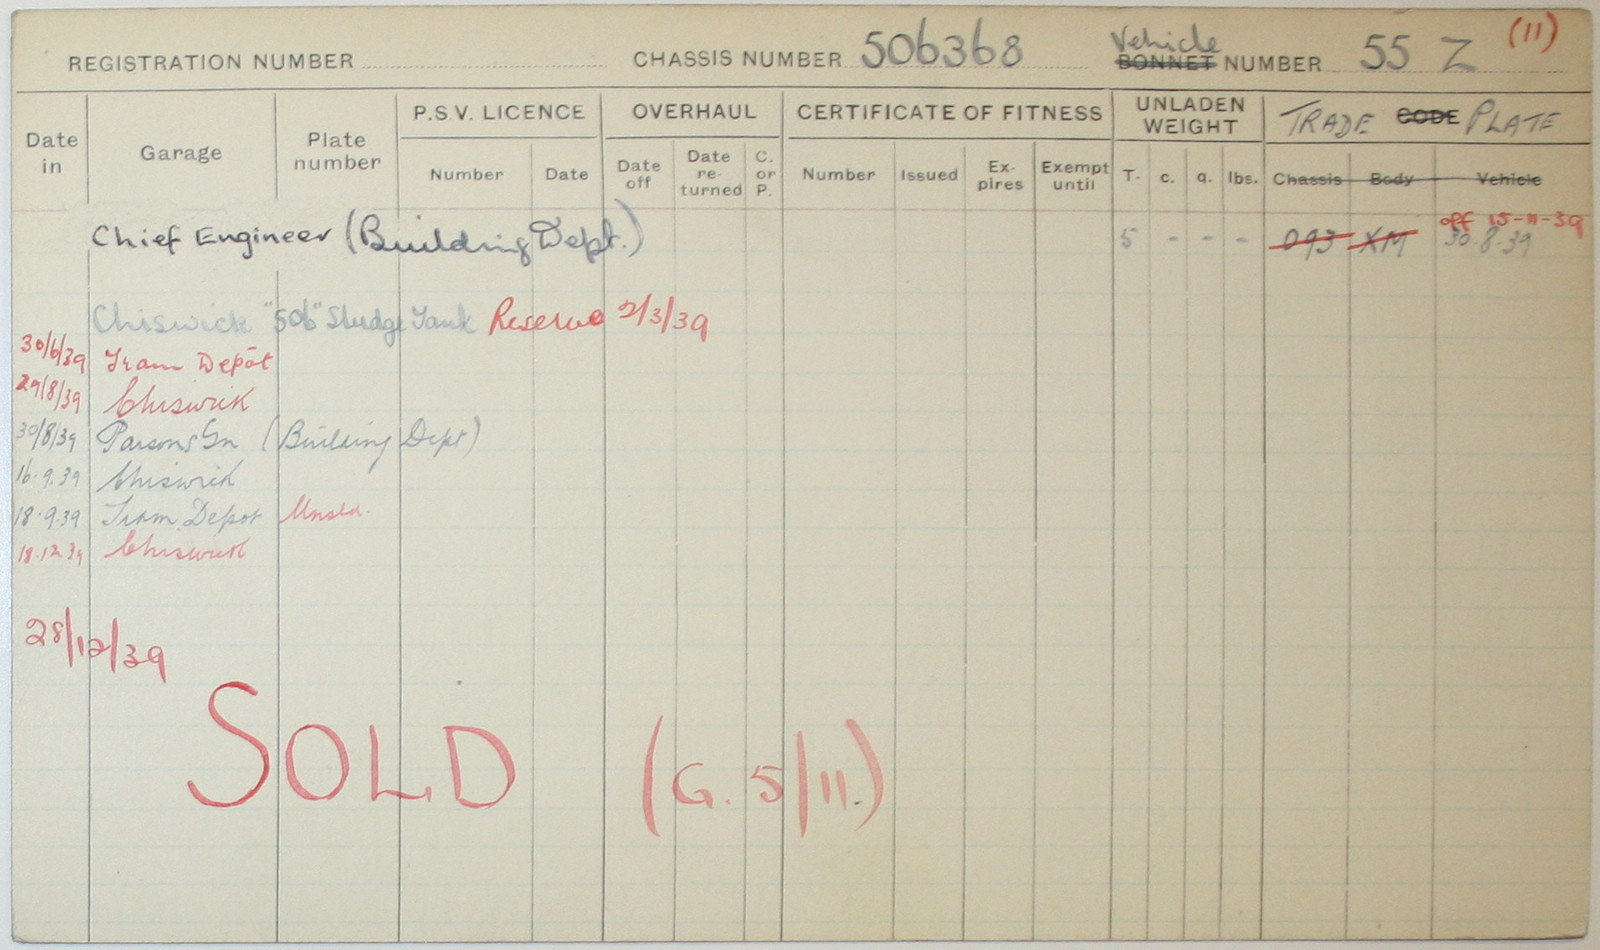 (11)
REGISTRATION NUMBER CHASSIS NUMBER 506368 Vehicle BONNET NUMBER 55 Z
Date in Garage Plate number P.S.V. LICENCE OVERHAUL CERTIFICATE OF FITNESS UNLADEN WEIGHT TRADE CODE PLATE
Number Date Date off Date re-turned C. or P. Number Issued Ex-pires Exempt until T. c. q. lbs. Chassis Body Vehicle
off 15-11-39
Chief Engineer (Building Dept.) 5 - - - 093 XM 30.8.39
Chiswick "506" Sludge Tank Reserve 2/3/39
30/6/39 Tram Depôt
29/8/39 Chiswick
30/8/39 Parsons Gn (Building Dept)
16.9.39 Chiswick
18.9.39 Tram Depot
18.12.39 Chiswick
28/12/39
SOLD (G. 5/11.)